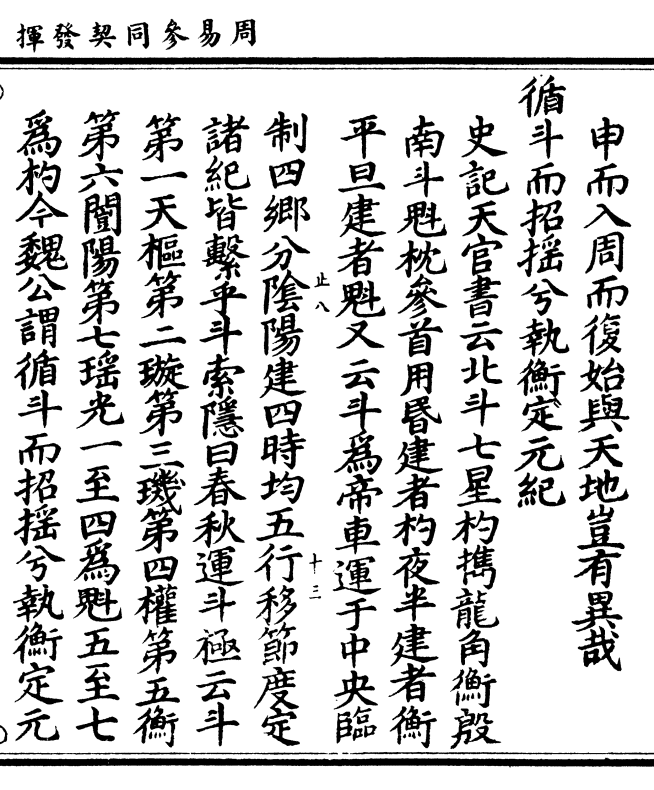 周易參同契發揮
申而入周而復始與天地豈有異哉
循斗而招摇兮執衡定元紀
史記天官書云北斗七星杓携龍角衡殷
南斗魁枕參首用昬建者杓夜半建者衡
平旦建者魁又云斗爲帝車運于中央臨
制四鄉分隂陽建四時均五行移節度定
諸紀皆繫乎斗索隱曰春秋運斗極云斗
第一天樞第二璇第三璣第四權第五衡
第六闓陽第七瑶光一至四爲魁五至七
爲杓今魏公謂循斗而招揺兮執衡定元
止八
十三